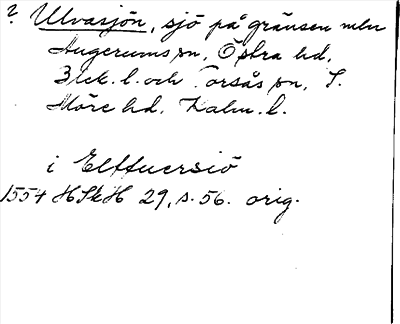 ? Ulvasjön, sjö på gränsen mln
Augerums sn, Östra hd,
Blek. l. och Torsås sn, S.
Möre hd, Kalm. l.
i Elffuersiö
1554 HSkH 29, s. 56. orig.